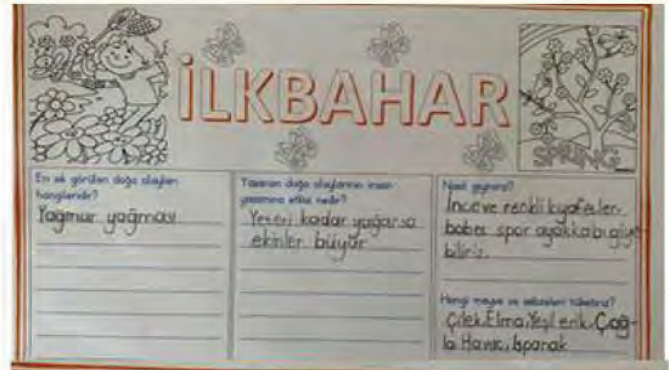 İLKBAHAR
SPRING
En sık görülen doğa olayları
hangileridir?
Yağmur yağması
Yaşanan doğa olaylarının insan
yaşamına etkisi nedir?
Yeteri kadar yağarsa
ekinler büyür
Nasıl giyiniriz?
İnce ve renkli kıyafetler,
babet spor ayakkabı giye
biliriz.
Hangi meyve ve sebzeleri tüketiriz?
Çilek, Elma, Yeşil erik, Çağ-
la Havuç, Ispanak